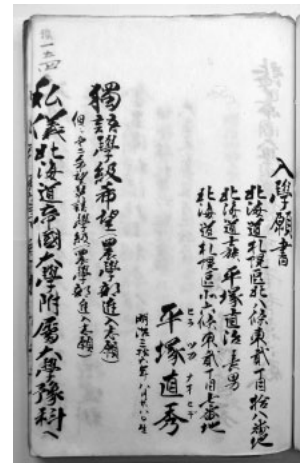 入學願書
北海道札幌區北八條東貳丁目拾八番地
北海道士族 平塚直治 長男
北海道札幌區北八條東貳丁目七番地
ヒラ ツカ ナオ ヒデ
平塚直秀
明治三拾六年八月八日生
獨語學級希望(農學部進入志願)
私儀北海道帝國大學附屬大學豫科ヘ